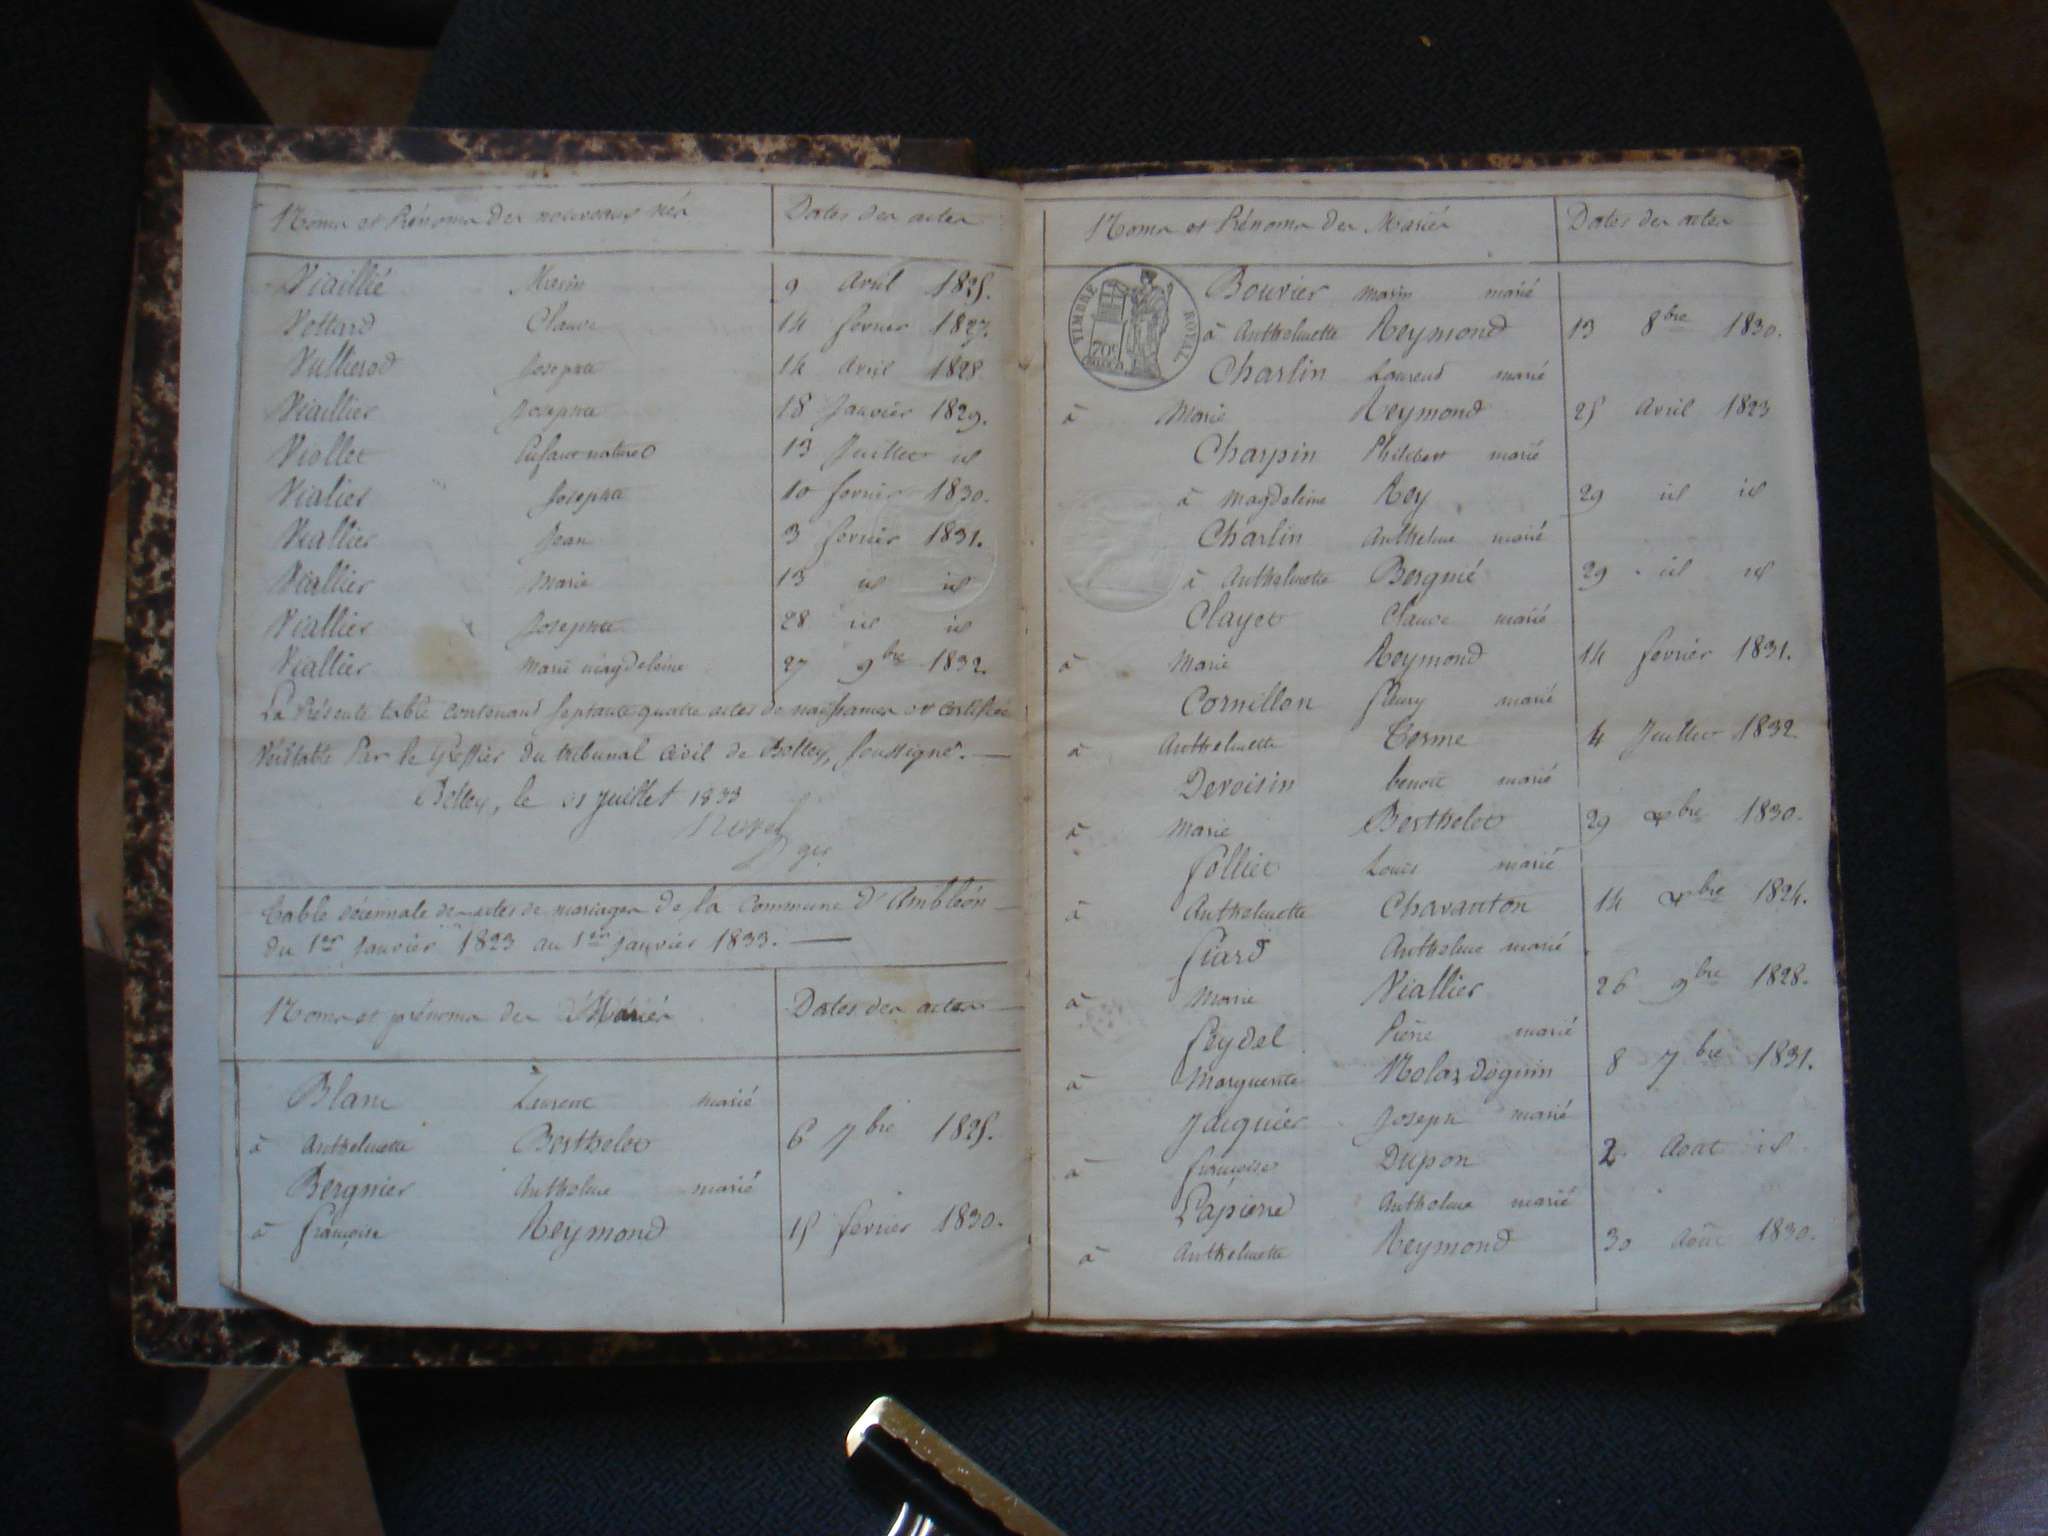 Noms et Prénoms des nouveaux nés Dates des actes
Viaillié Marin 9 avril 1825.
Vottard Claude 14 fevrier 1827.
Vullierod Josephte 14 avril 1828
Viaillier Josephte 18 Janvier 1829.
Viollet Enfant naturel 13 Juillet id
Vialier Josephte 10 fevrier 1830.
Viallier Jean 3 fevrier 1831.
Viallier Marie 13 id id
Viallier Josephte 28 id id
Viallier Marie magdeleine 27 9bre 1832.
La Présente table contenant septante quatre actes de naissances est certifiée
Véritable Par le Greffier du tribunal civil de Belley, soussigné.
Belley, le 31 juillet 1833
Table décennale des actes de mariages de la Commune d'Ambléon
du 1er Janvier 1823 au 1er Janvier 1833.
Noms et prénoms des Mariés Dates des actes
Blanc Laurent marié
à Anthelmette Berthelet 6 7bre 1825.
Bergnier Anthelme marié
à françoise Reymond 15 fevrier 1830.
Noms et Prénoms des Mariés Dates des actes
TIMBRE ROYAL
70c
Bouvier Marin marié
à Anthelmette Reymond 13 8bre 1830.
Charlin Laurend marié
à Marie Reymond 25 avril 1823
Charpin Philibert marié
à magdeleine Rey 29 id id
Charlin Anthelme marié
à Anthelmette Bergnié 29 id id
Clayet Claude marié
à Marie Reymond 14 fevrier 1831.
Cornillon fleury marié
à Anthelmette Terme 4 Juillet 1832.
Devoisin benoit marié
à Marie Berthelet 29 xbre 1830.
folliet Louis marié
à Anthelmette Chavanton 14 xbre 1824.
fiard Anthelme marié
à Marie Viallier 26 9bre 1828.
feydel Pierre marié
à Marguerite Molaz doguin 8 7bre 1831.
Jacquier Joseph marié
à françoise Dupon 2 Aoat id
Lapierre Anthelme marié
à Anthelmette Reymond 30 Août 1830.